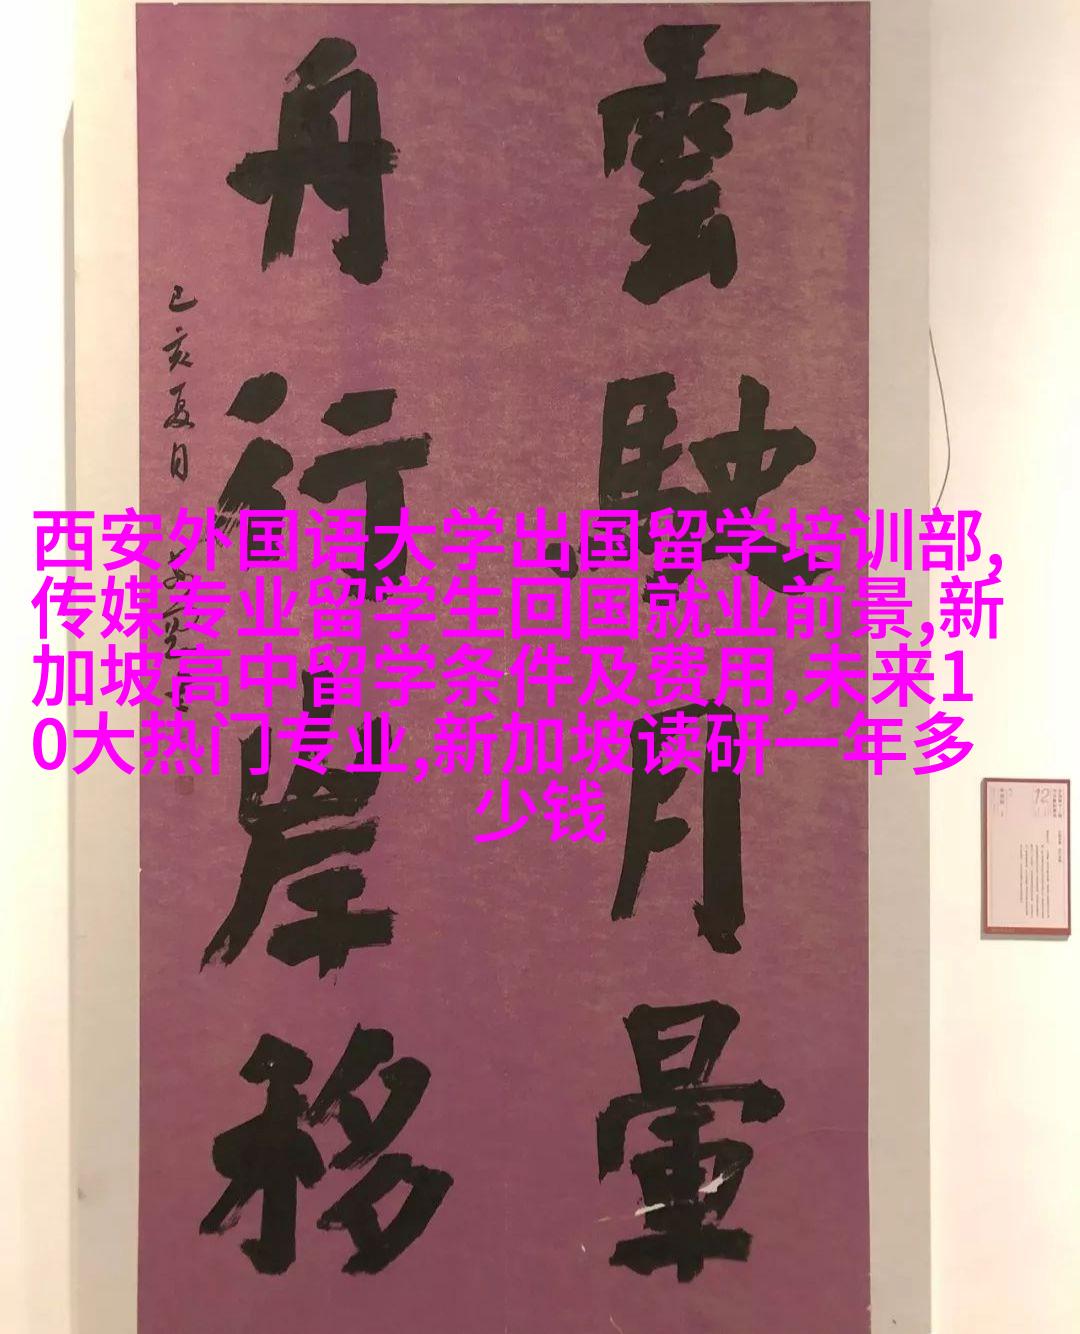 雲駛月暈
舟行岸移
己亥夏日
西安外国语大学出国留学培训部,
传媒专业留学生回国就业前景,新
加坡高中留学条件及费用,未来1
0大热门专业,新加坡读研一年多
少钱
12